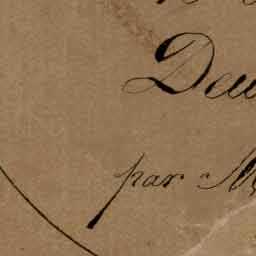 Deu
par M